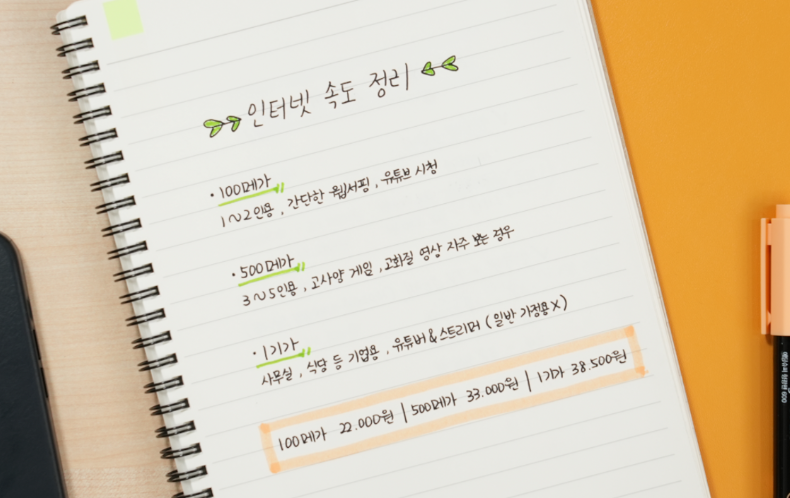 인터넷 속도 정리
• 100메가
1~2인용, 간단한 웹서핑, 유튜브 시청
• 500메가
3~5인용, 고사양 게임, 고화질 영상 자주 보는 경우
• 1기가
사무실, 식당 등 기업용, 유튜버&스트리머 (일반 가정용X)
100메가 22.000원 | 500메가 33.000원 | 1기가 38.500원